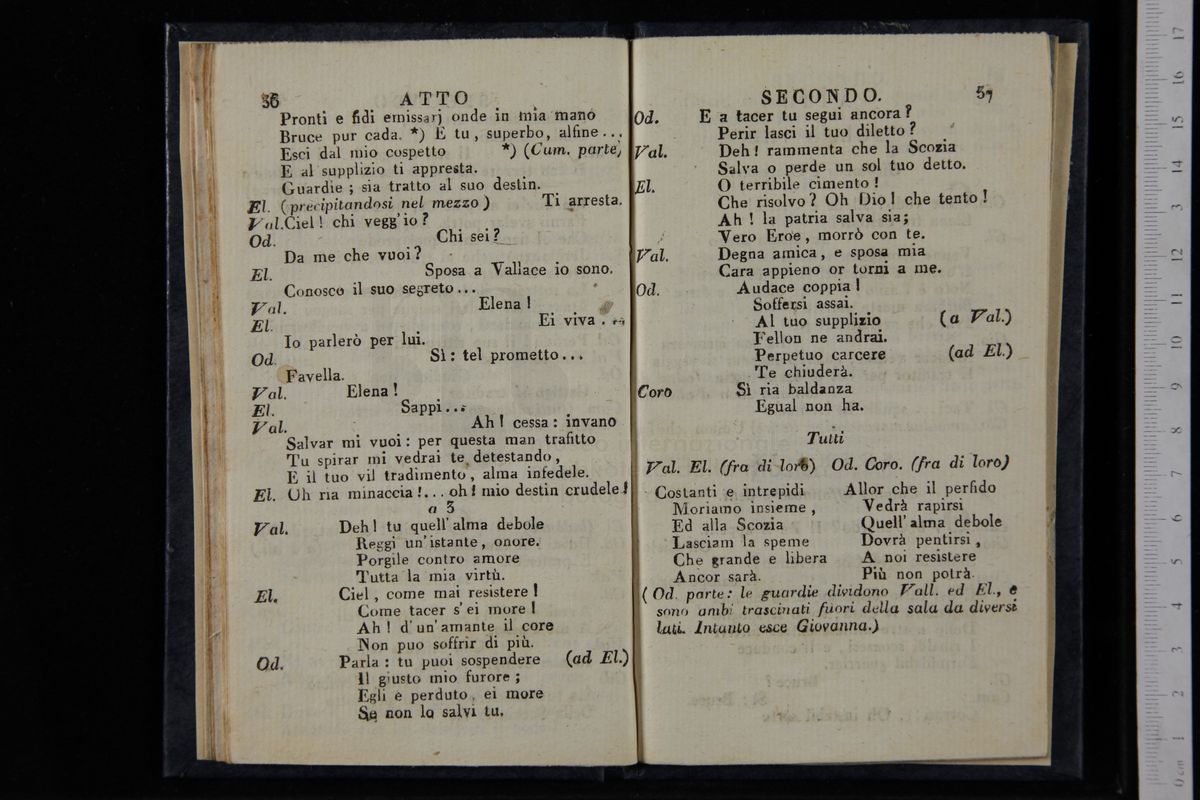 36 ATTO
Pronti e fidi emissarj onde in mia mano
Bruce pur cada. *) E tu, superbo, alfine...
Esci dal mio cospetto *) (Cum. parte)
E al supplizio ti appresta.
Guardie; sia tratto al suo destin.
El. (precipitandosi nel mezzo) Ti arresta.
Val. Ciel! chi vegg'io?
Od. Chi sei?
Da me che vuoi?
El. Sposa a Vallace io sono.
Conosco il suo segreto...
Val. Elena!
El. Ei viva...
Io parlerò per lui.
Od. Sì: tel prometto...
Favella.
Val. Elena!
El. Sappi...
Val. Ah! cessa: invano
Salvar mi vuoi: per questa man trafitto
Tu spirar mi vedrai te detestando,
E il tuo vil tradimento, alma infedele.
El. Oh ria minaccia!... oh! mio destin crudele!
a 3
Val. Deh! tu quell'alma debole
Reggi un'istante, onore.
Porgile contro amore
Tutta la mia virtù.
El. Ciel, come mai resistere!
Come tacer s'ei more!
Ah! d'un'amante il core
Non puo soffrir di più.
Od. Parla: tu puoi sospendere (ad El.)
Il giusto mio furore;
Egli e perduto, ei more
Se non lo salvi tu.
SECONDO. 57
Od. E a tacer tu segui ancora?
Perir lasci il tuo diletto?
Val. Deh! rammenta che la Scozia
Salva o perde un sol tuo detto.
El. O terribile cimento!
Che risolvo? Oh Dio! che tento!
Ah! la patria salva sia;
Vero Eroe, morrò con te.
Val. Degna amica, e sposa mia
Cara appieno or torni a me.
Od. Audace coppia!
Soffersi assai.
Al tuo supplizio (a Val.)
Fellon ne andrai.
Perpetuo carcere (ad El.)
Te chiuderà.
Coro Sì ria baldanza
Egual non ha.
Tutti
Val. El. (fra di loro) Od. Coro. (fra di loro)
Costanti e intrepidi Allor che il perfido
Moriamo insieme, Vedrà rapirsi
Ed alla Scozia Quell'alma debole
Lasciam la speme Dovrà pentirsi,
Che grande e libera A noi resistere
Ancor sarà. Più non potrà.
(Od. parte: le guardie dividono Vall. ed El., e
sono ambi trascinati fuori della sala da diversi
lati. Intanto esce Giovanna.)